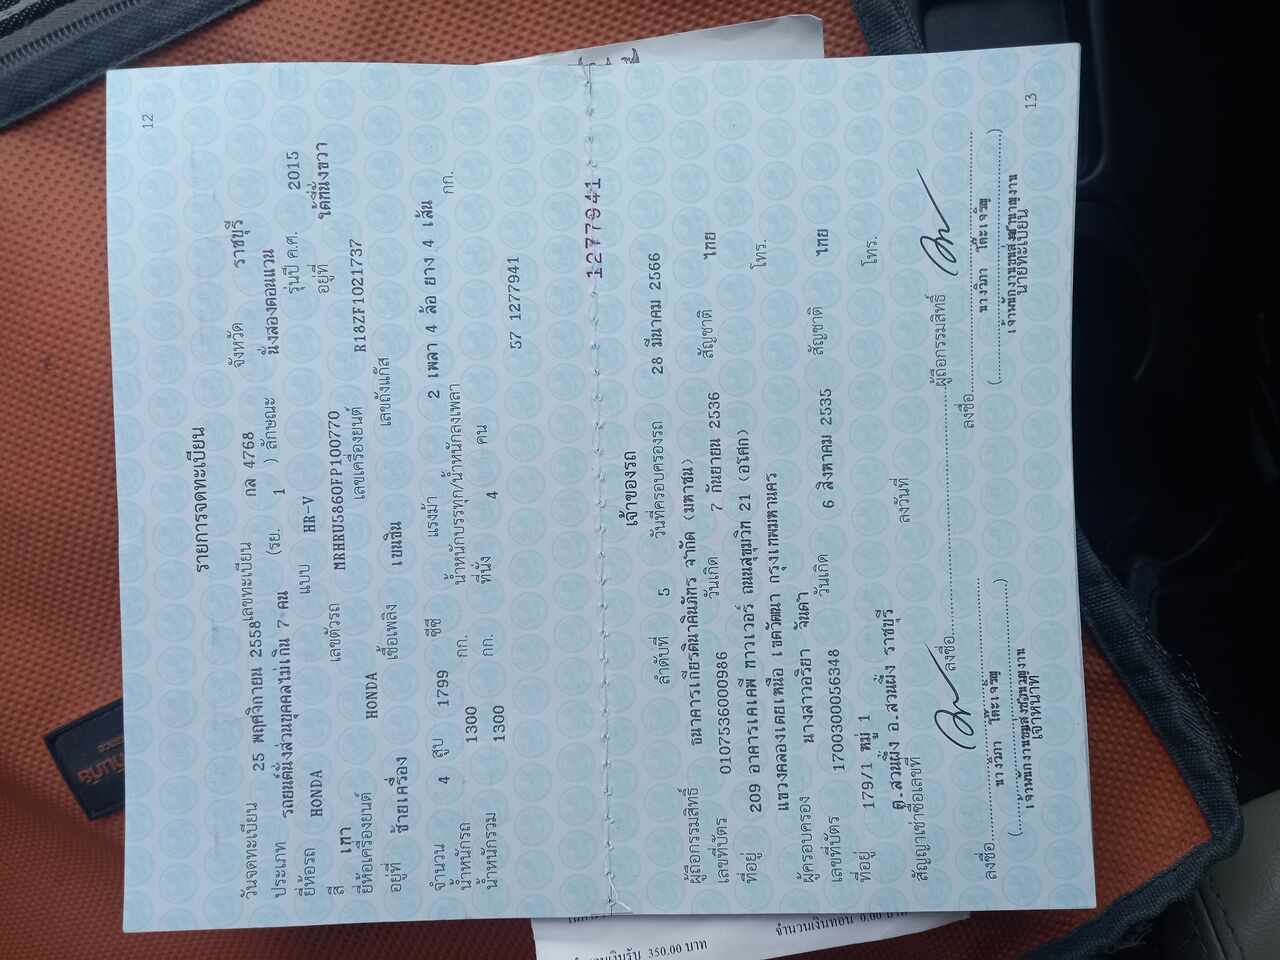 12
รายการจดทะเบียน
วันจดทะเบียน 25 พฤศจิกายน 2558 เลขทะเบียน กล 4768 จังหวัด ราชบุรี
ประเภท รถยนต์นั่งส่วนบุคคลไม่เกิน 7 คน (รย. 1 ) ลักษณะ นั่งสองตอนแวน
ยี่ห้อรถ HONDA แบบ HR-V รุ่นปี ค.ศ. 2015
สี เทา เลขตัวรถ MRHRU5860FP100770 อยู่ที่ ใต้ที่นั่งขวา
ยี่ห้อเครื่องยนต์ HONDA เลขเครื่องยนต์ R18ZF1021737
อยู่ที่ ซ้ายเครื่อง เชื้อเพลิง เบนซิน เลขถังแก๊ส
จำนวน 4 สูบ 1799 ซีซี แรงม้า 2 เพลา 4 ล้อ ยาง 4 เส้น
น้ำหนักรถ 1300 กก. น้ำหนักบรรทุก/น้ำหนักลงเพลา กก.
น้ำหนักรวม 1300 กก. ที่นั่ง 4 คน
57 1277941
1277941
เจ้าของรถ
ลำดับที่ 5 วันที่ครอบครองรถ 28 มีนาคม 2566
ผู้ถือกรรมสิทธิ์ ธนาคารเกียรตินาคินภัทร จำกัด (มหาชน)
เลขที่บัตร 0107536000986 วันเกิด 7 กันยายน 2536 สัญชาติ ไทย
ที่อยู่ 209 อาคารเคเคพี ทาวเวอร์ ถนนสุขุมวิท 21 (อโศก) โทร.
แขวงคลองเตยเหนือ เขตวัฒนา กรุงเทพมหานคร
ผู้ครอบครอง นางสาวอริยา จันดำ
เลขที่บัตร 1700300056348 วันเกิด 6 สิงหาคม 2535 สัญชาติ ไทย
ที่อยู่ 179/1 หมู่ 1 โทร.
ต.สวนผึ้ง อ.สวนผึ้ง ราชบุรี
สัญญาเช่าซื้อเลขที่ ลงวันที่
ลงชื่อ ผู้ถือกรรมสิทธิ์
ลงชื่อ ลงชื่อ
นางวิภา นางวิภา
เจ้าหน้าที่ นายทะเบียน
13
350.00 บาท
จำนวนเงินทอน 0.00 บาท